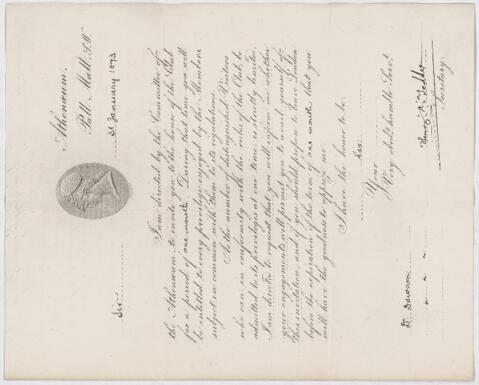 Athenæum.
Pall Mall. S.W.
31 January 1893
Sir,
I am directed by the Committee of
the Athenæum, to invite you to the house of the Club
for a period of one month. During that time you will
be entitled to every privilege enjoyed by the Members
subject in common with them to its regulations.
As the number of distinguished Visitors
who can in conformity with the rules of the Club be
admitted to its privileges at one time is strictly limited,
I am directed to request that you will inform me whether
your engagements will permit you to avail yourself of
this invitation, and if you should propose to leave London
before the expiration of the term of one month that you
will have the goodness to apprize me
I have the honor to be.
Sir.
Your
Very obedt. humble Servt.
Henry R. Tedder
Secretary.
Dr. Dawson